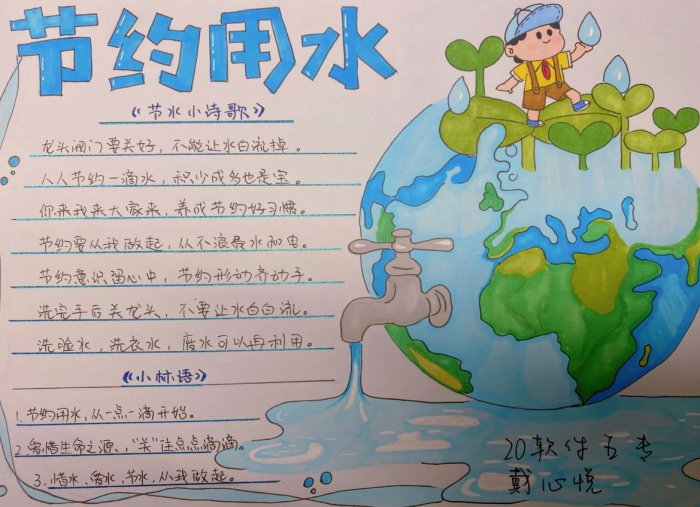 节约用水
《节水小诗歌》
龙头阀门要关好，不能让水白流掉。
人人节约一滴水，积少成多也是宝。
你来我来大家来，养成节约好习惯。
节约要从我做起，从不浪费水和电。
节约意识留心中，节约形动齐动手。
洗完手后关龙头，不要让水白白流。
洗脸水，洗衣水，废水可以再利用。
《小标语》
1.节约用水，从一点一滴开始。
2.爱惜生命之源、"关"住点点滴滴。
3.惜水、爱水、节水，从我做起。
20软件五专
戴心悦